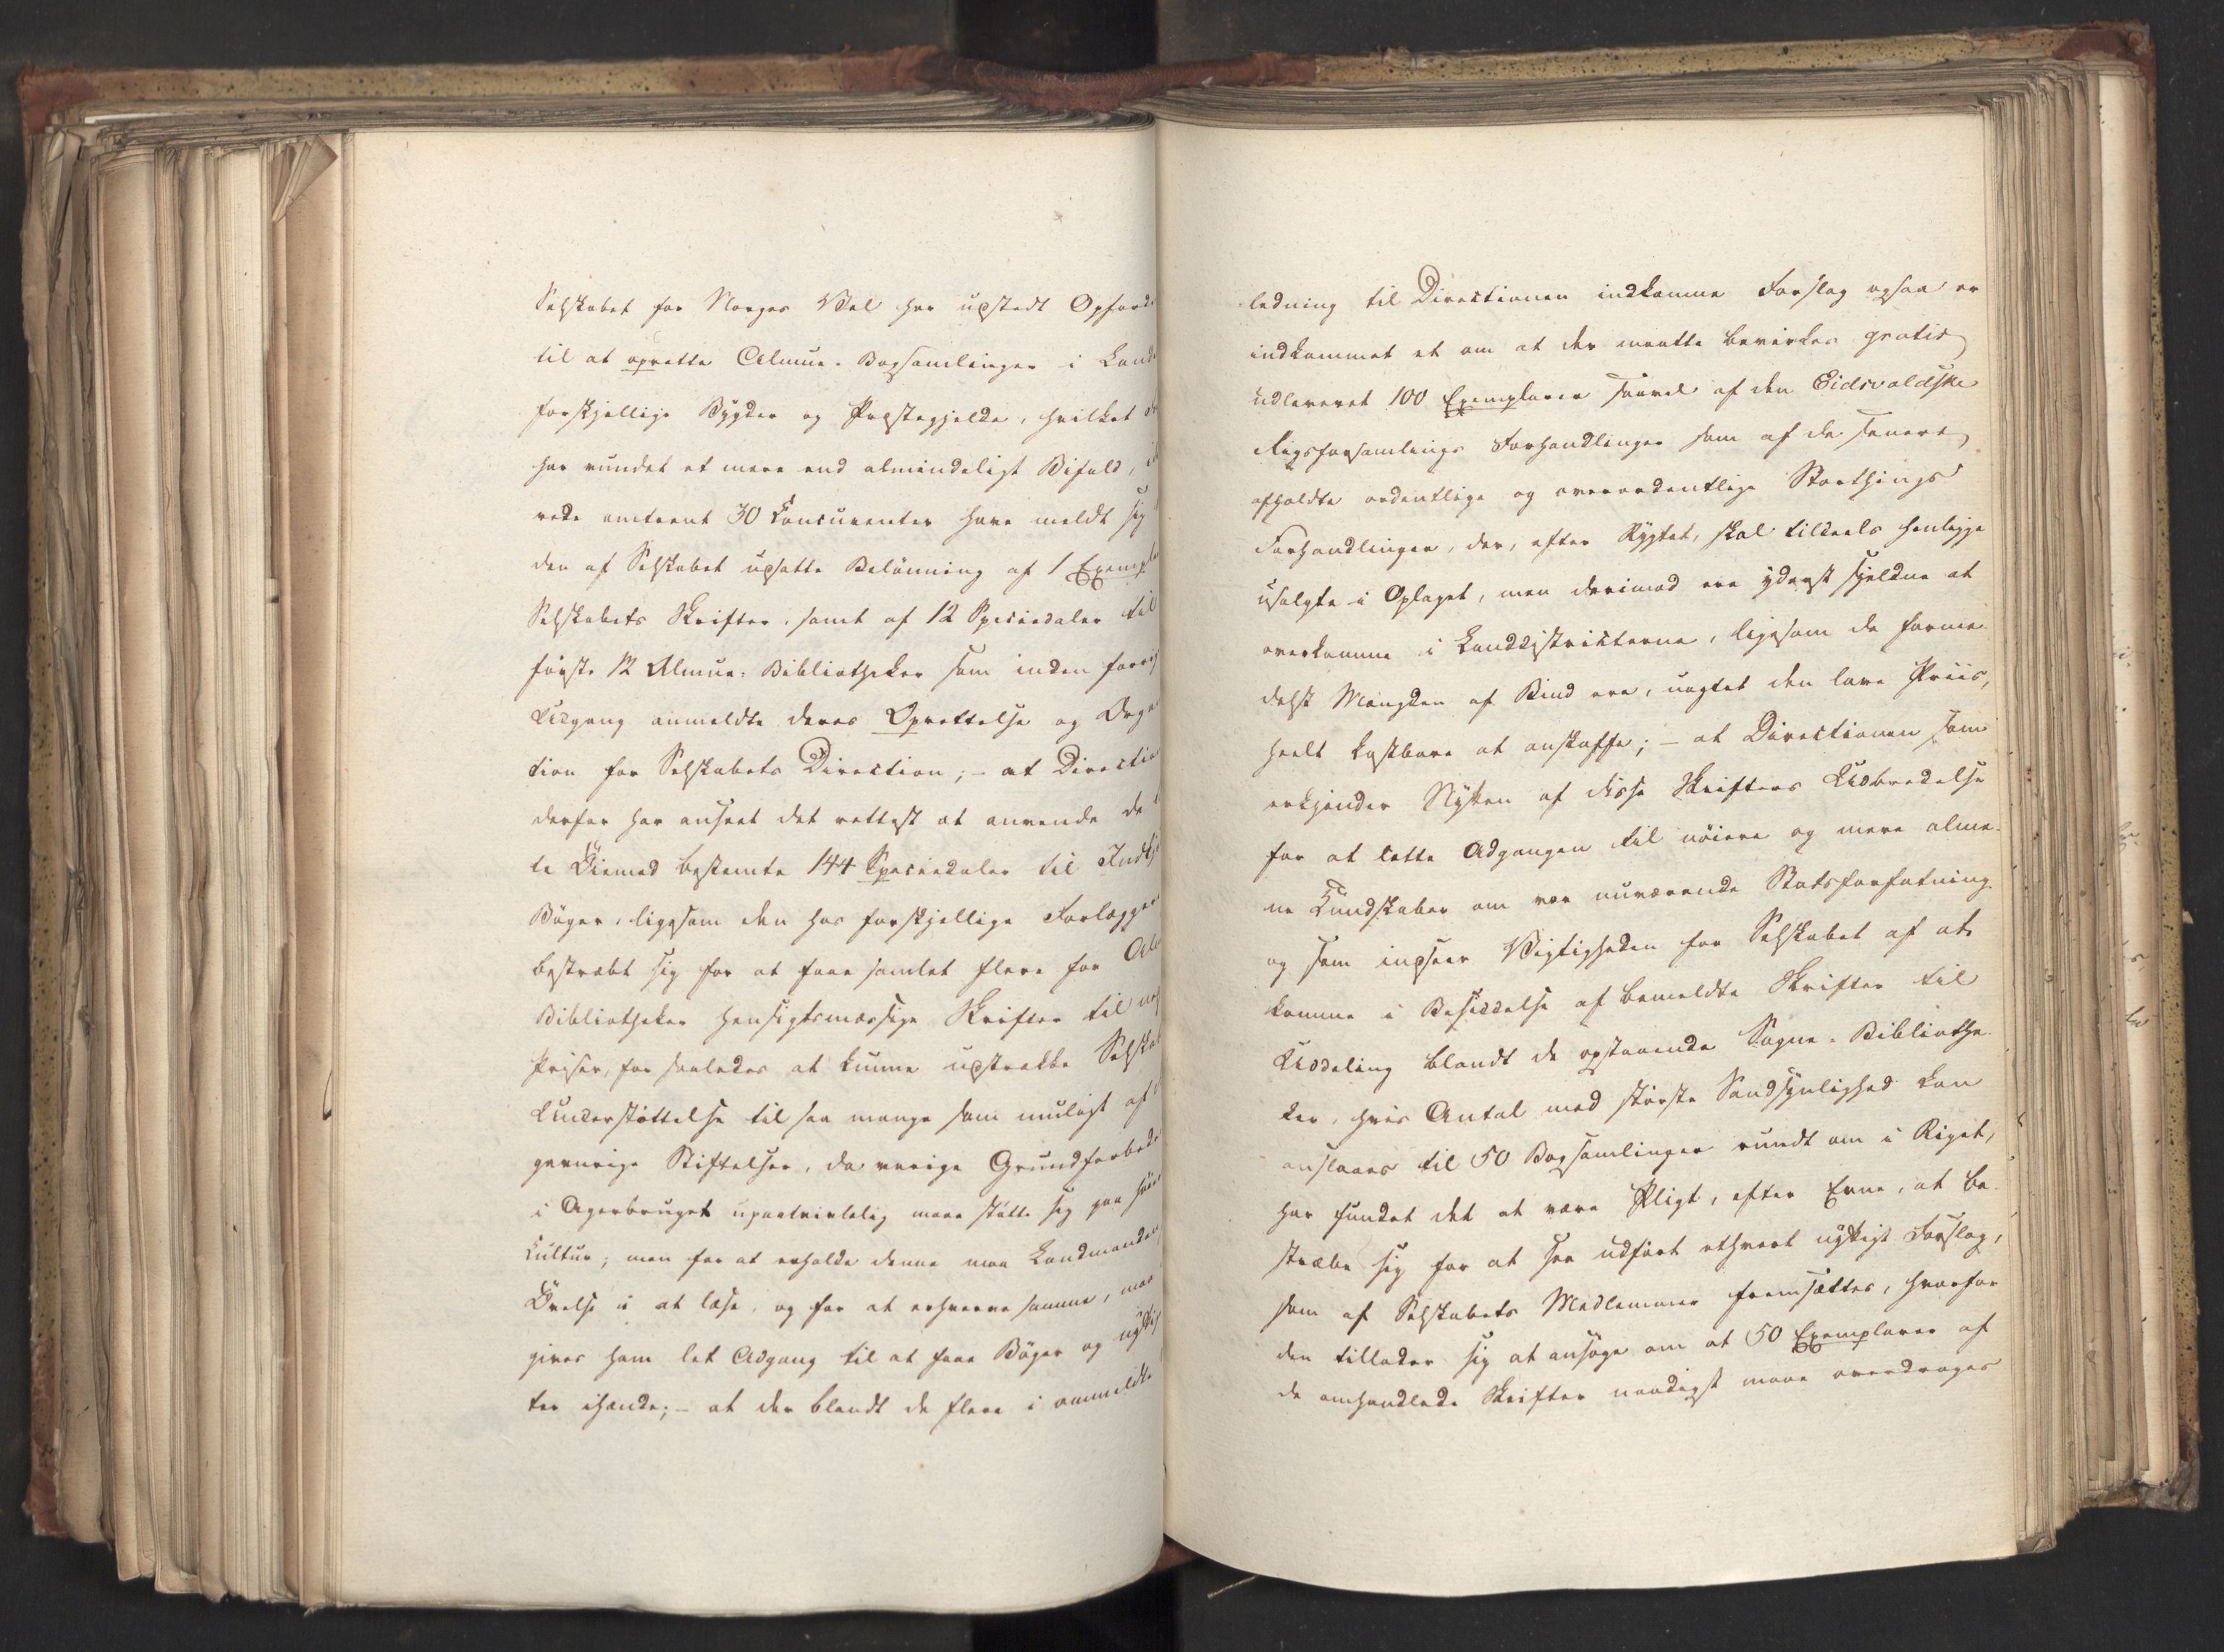 Selskabet for Norges Vel har udstedt Opford
til at oprette Almue-Bogsamlinger i Land
forskjellige Bygder og Præstegjelde, hvilket
har vundet et mere end almindeligt Bifald,
rede omtrent 30 Concurenter have meldt sig
den af Selskabet udsatte Belönning af 1 Exempl
Selskabets Skrifter, samt af 12 Speciedaler til
förste 12 Almue-Bibliotheker som inden forrig
Udgang anmeldte deres Oprettelse og Orga
tion for Selskabets Direction; - at Directio
derfor har anseet det rettest at anvende de
te Öiemed bestemte 144 Speciedaler til Indkj
Böger, ligesom den hos forskjellige Forlægger
bestræbt sig for at faae samlet flere for Alm
Bibliotheker hensigtsmæssige Skrifter til
Priser, for saaledes at kunne udstrække Selskab
Understöttelse til saa mange som muligt af
gavnrige Stiftelser, da varige Grundforbed
i Agerbruget upaatvivlelig maae stötte sig paa
Cultur; men for at erholde denne maa Landmanden
Övelse i at læse, og for at erhverve samme, maa
gives ham let Adgang til at faae Böger og nyttig
ter ihænde; - at der blandt de flere i anmeldte
ledning til Directionen indkomne Forslag ogsaa er
indkommet et om at der maatte bevirkes gratis
udleveret 100 Exemplarer saavel af den Eidsvoldske
Rigsforsamlings Forhandlinger som af de senere
afholdte ordentlige og overordentlige Storthings
Forhandlinger, der, efter Rygtet, skal tildeels henligge
usolgte i Oplaget, men derimod ere yderst sjeldne at
overkomme i Landdistricterne, ligesom de forme-
delst Mængden af Bind ere, uagtet den lave Priis,
heelt kostbare at anskaffe; - at Directionen som
erkjender Nytten af disse Skrifters Udbredelse
for at lette Adgangen til nöiere og mere alme-
ne Kundskaber om vor nuværende Statsforfatning
og som indseer Vigtigheden for Selskabet af at
komme i Besiddelse af bemeldte Skrifter til
Uddeling blandt de opstaaende Sogne-Bibliothe-
ker, hvis Antal med störste Sandsynlighed kan
anslaaes til 50 Bogsamlinger rundt om i Riget,
har fundet det at være Pligt, efter Evne, at be-
stræbe sig for at see udfört ethvert nyttigt Forslag,
som af Selskabets Medlemmer fremsættes, hvorfor
den tillader sig at ansöge om at 50 Exemplarer af
de omhandlede Skrifter naadigst maae overdrages